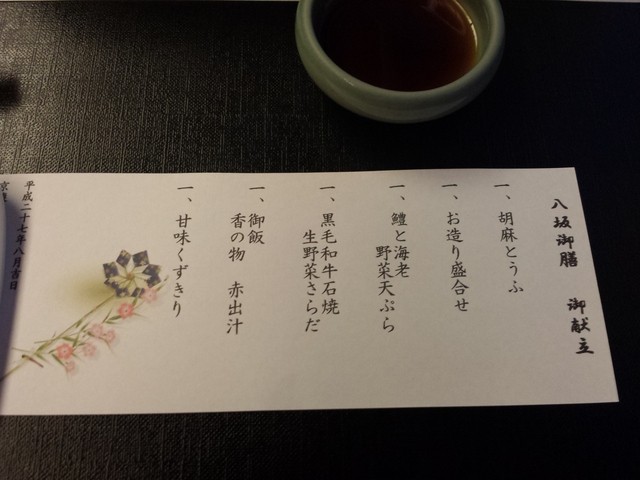 八坂御膳　御献立
一、胡麻とうふ
一、お造り盛合せ
一、鱧と海老
野菜天ぷら
一、黒毛和牛石焼
生野菜さらだ
一、御飯
香の物　赤出汁
一、甘味くずきり
平成二十七年八月吉日
京